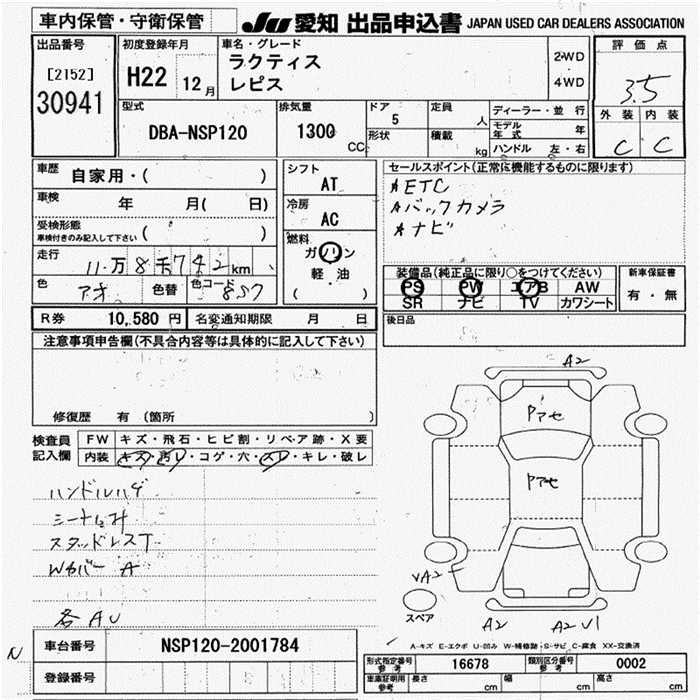 車内保管・守衛保管
JU 愛知 出品申込書 JAPAN USED CAR DEALERS ASSOCIATION
出品番号
[2152]
30941
初度登録年月
H22 12月
車名・グレード
ラクティス
レピス
2WD
4WD
評価点
3.5
外装 内装
C C
型式
DBA-NSP120
排気量
1300 CC
ドア
5
形状
定員 人
積載 kg
ディーラー・並行
モデル年式 年
ハンドル 左・右
車歴 自家用・( )
車検 年 月( 日)
受検形態
車検付きのみ記入して下さい ( )
走行 11万8千742km
色 アオ 色替 色コード 8S7
シフト
AT
冷房
AC
燃料
ガソリン
軽・油
( )
セールスポイント(正常に機能するものに限ります)
ETC
バックカメラ
ナビ
装備品(純正品に限り○をつけてください)
PS PW エアB AW
SR ナビ TV カワシート
新車保証書
有・無
R券 10,580円 名変通知期限 月 日
後日品
注意事項申告欄(不具合内容等は具体的に記入して下さい)
修復歴 有 (箇所
検査員記入欄
FW キズ・飛石・ヒビ割・リペア跡・X要
内装 キズ・汚レ・コゲ・穴・スレ・キレ・破レ
ハンドルハゲ
スタッドレスT
Wカバー A
各AU
N
A2
Pアセ
Pアセ
VA2
スペア
A2
A2 U1
A-キズ E-エクボ U-凹み W-補修跡 S-サビ C-腐食 XX-交換済
車台番号 NSP120-2001784
登録番号
型式指定番号 参考 16678 類別区分番号 参考 0002
車庫証明用 参考 長さ cm 幅 cm 高さ cm